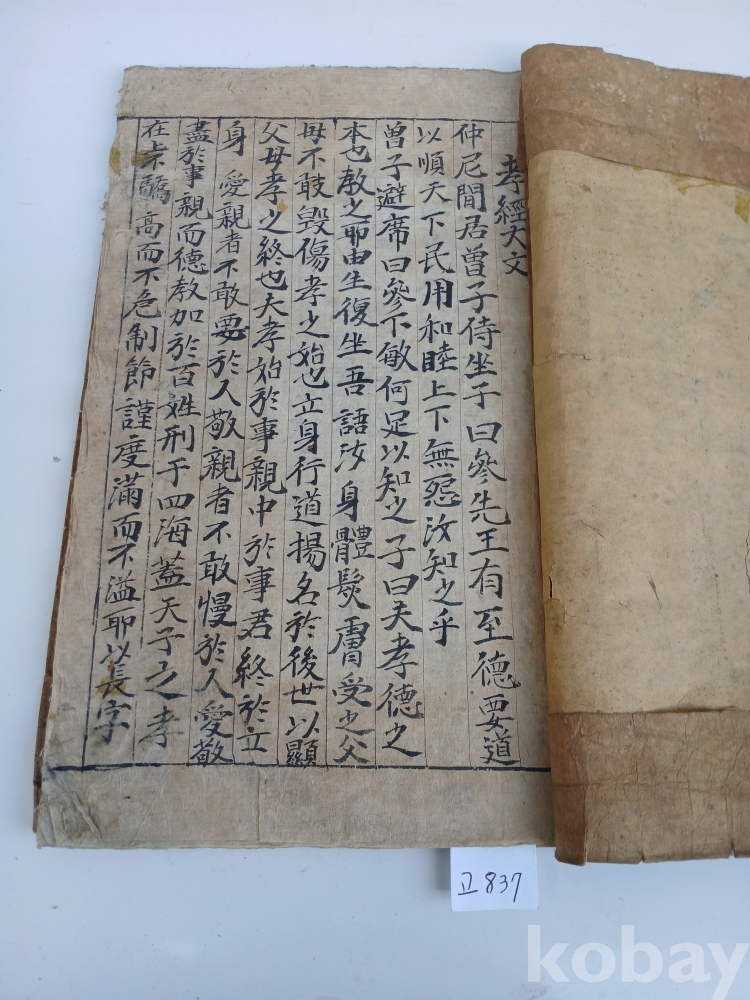 孝經大文
仲尼閒居曾子侍坐子曰參先王有至德要道
以順天下民用和睦上下無惡汝知之乎
曾子避席曰參不敏何足以知之子曰夫孝德之
本也教之所由生復坐吾語汝身體髮膚受之父
母不敢毀傷孝之始也立身行道揚名於後世以顯
父母孝之終也夫孝始於事親中於事君終於立
身 愛親者不敢惡於人敬親者不敢慢於人愛敬
盡於事親而德教加於百姓刑于四海蓋天子之孝
在上驕高而不危制節謹度滿而不溢所以長守
고837
kobay